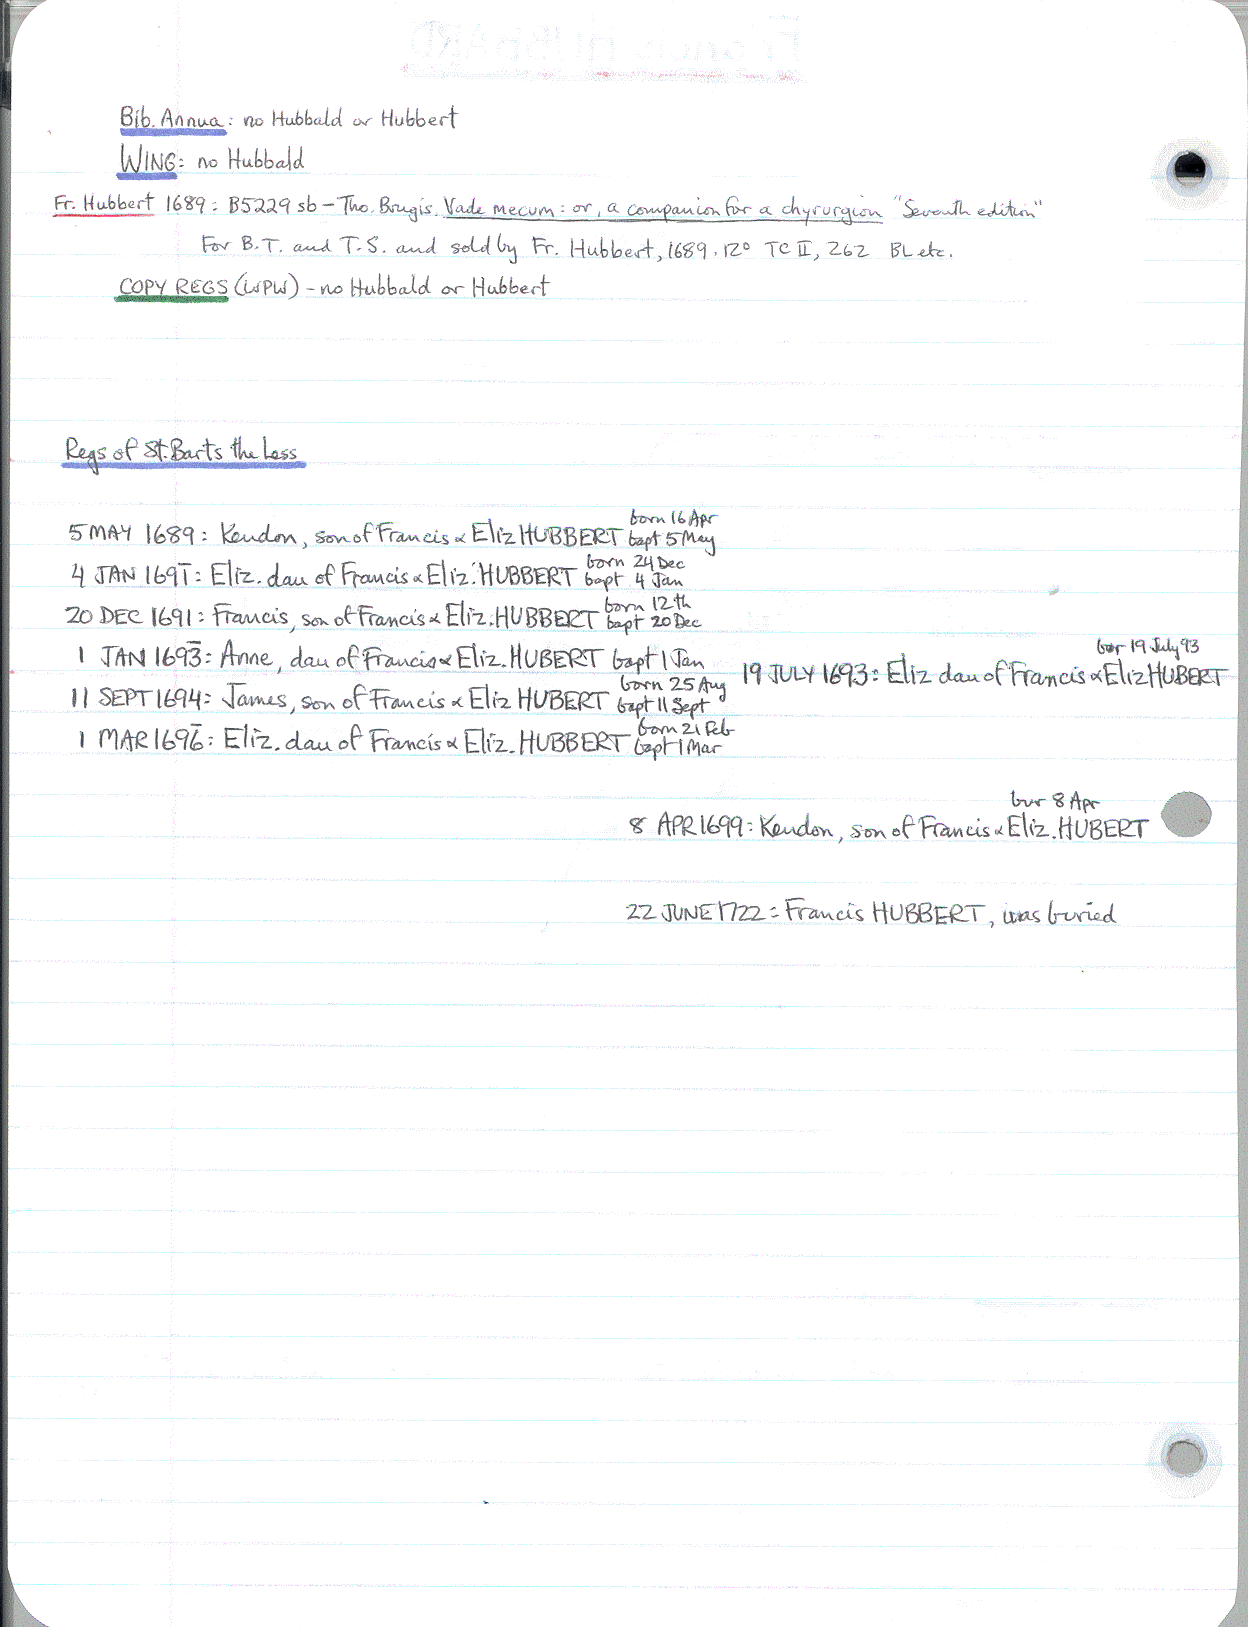 Bib. Annua: no Hubbald or Hubbert
WING: no Hubbald
Fr. Hubbert 1689: B5229 sb - Tho. Brugis. Vade mecum: or, a companion for a chyrurgion "Seventh edition"
For B.T. and T.S. and sold by Fr. Hubbert, 1689. 12° TC II, 262 BL etc.
COPY REGS (WPW) - no Hubbald or Hubbert
Regs of St. Barts the Less
born 16 Apr
5 MAY 1689: Kendon, son of Francis & Eliz HUBBERT bapt 5 May
born 24 Dec
4 JAN 1691: Eliz. dau of Francis & Eliz. HUBBERT bapt 4 Jan
born 12th
20 DEC 1691: Francis, son of Francis & Eliz. HUBBERT bapt 20 Dec
1 JAN 1693: Anne, dau of Francis & Eliz. HUBERT bapt 1 Jan
bur 19 July 93
19 JULY 1693: Eliz dau of Francis & Eliz HUBERT
born 25 Aug
11 SEPT 1694: James, son of Francis & Eliz HUBERT bapt 11 Sept
born 21 Feb
1 MAR 1696: Eliz. dau of Francis & Eliz. HUBBERT bapt 1 Mar
bur 8 Apr
8 APR 1699: Kendon, son of Francis & Eliz. HUBERT
22 JUNE 1722: Francis HUBBERT, was buried